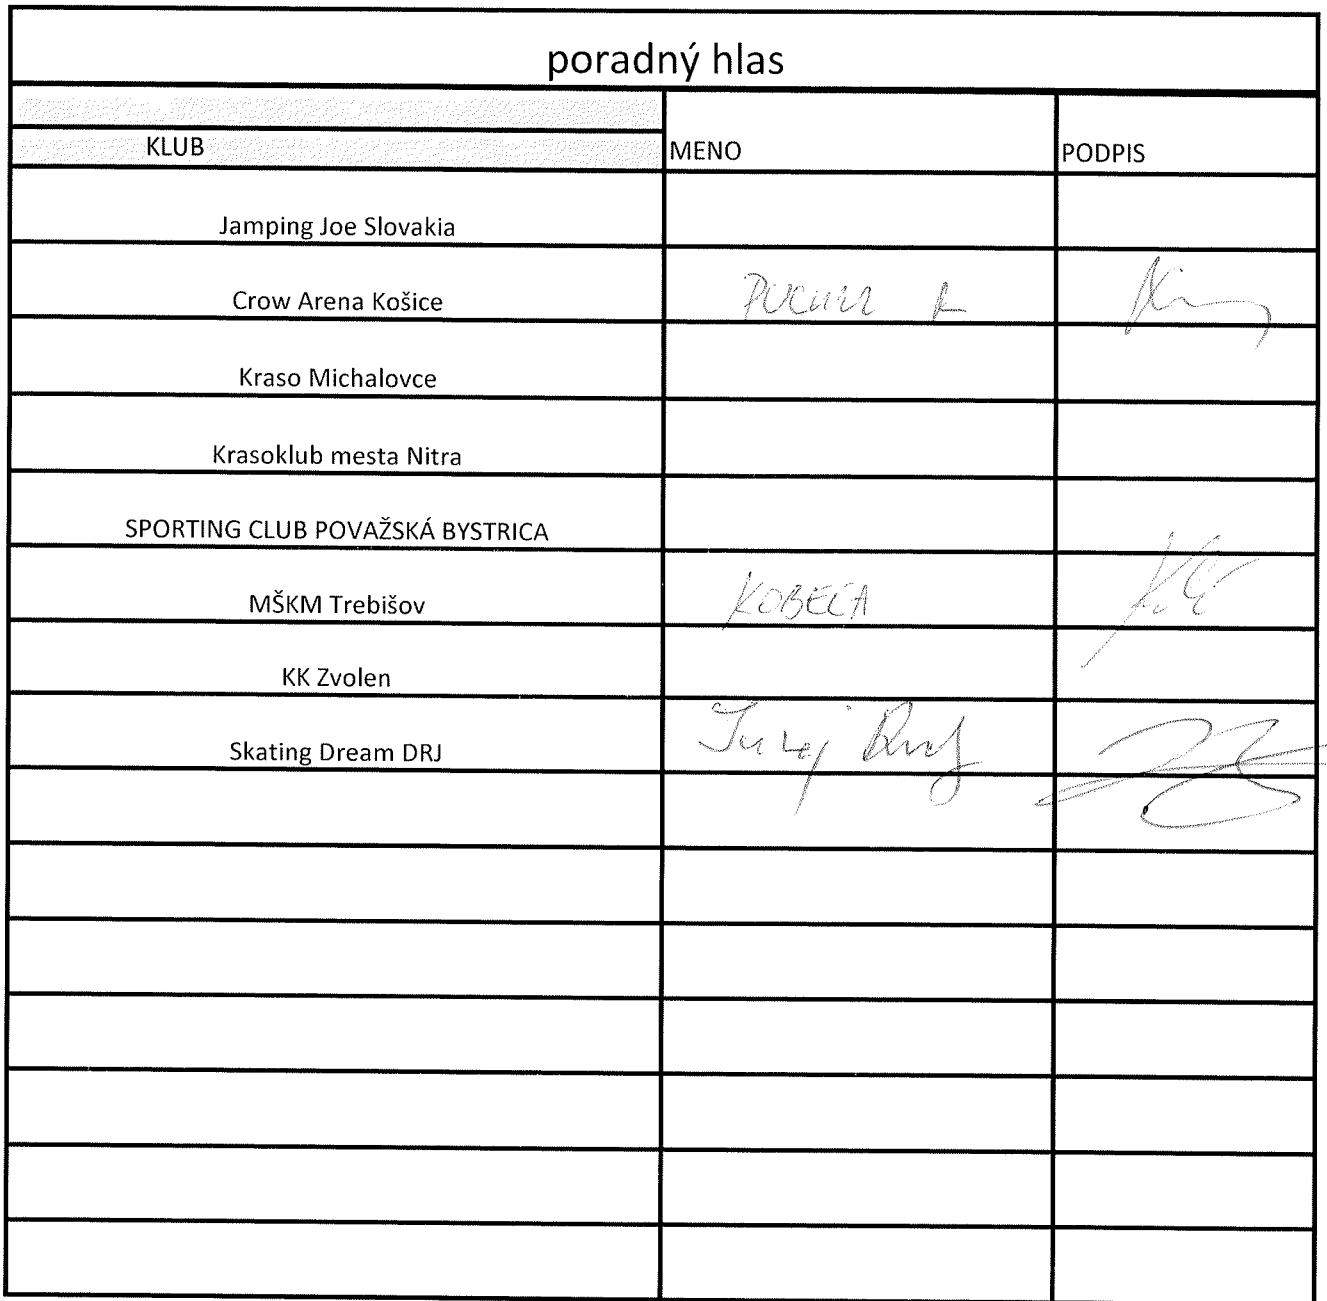 poradný hlas
KLUB MENO PODPIS
Jamping Joe Slovakia
Crow Arena Košice
Kraso Michalovce
Krasoklub mesta Nitra
SPORTING CLUB POVAŽSKÁ BYSTRICA
MŠKM Trebišov KOBEĽA
KK Zvolen
Skating Dream DRJ Juraj